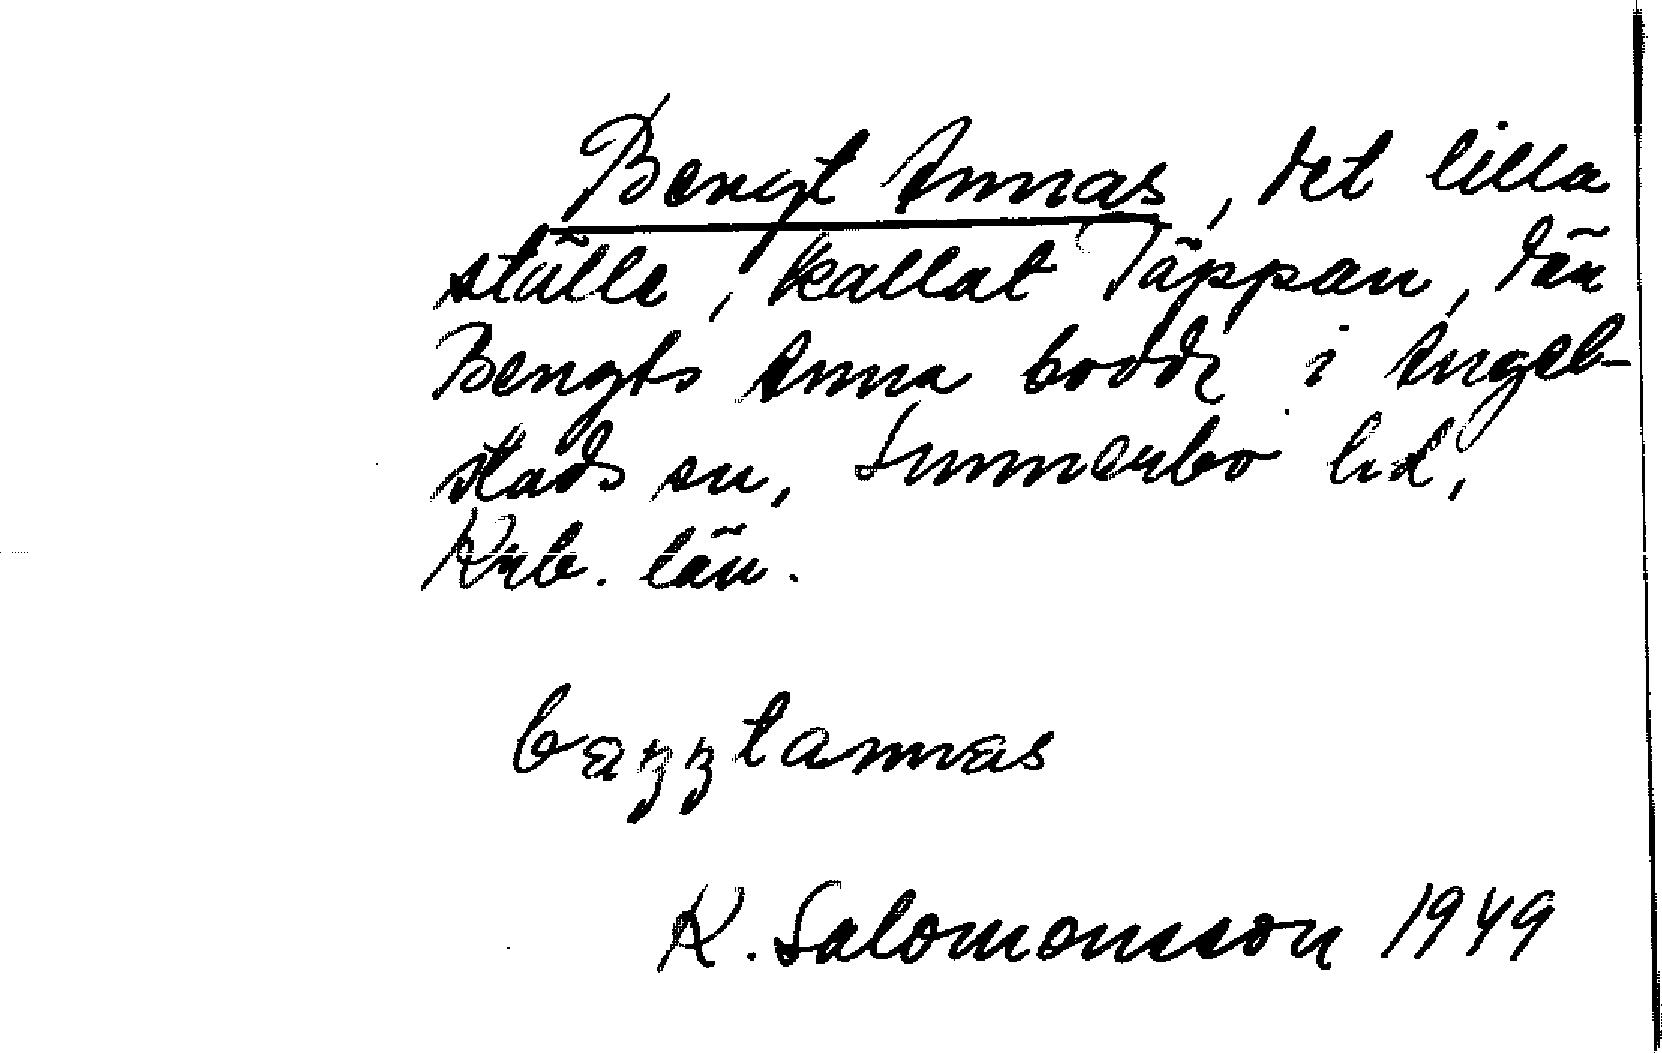 Bengt Annas, det lilla
ställe, kallat Täppan, där
Bengts Anna bodde i Angel-
stads sn, Sunnerbo hd,
Krb. län.
bæŋŋtannas
K. Salomonsson 1949